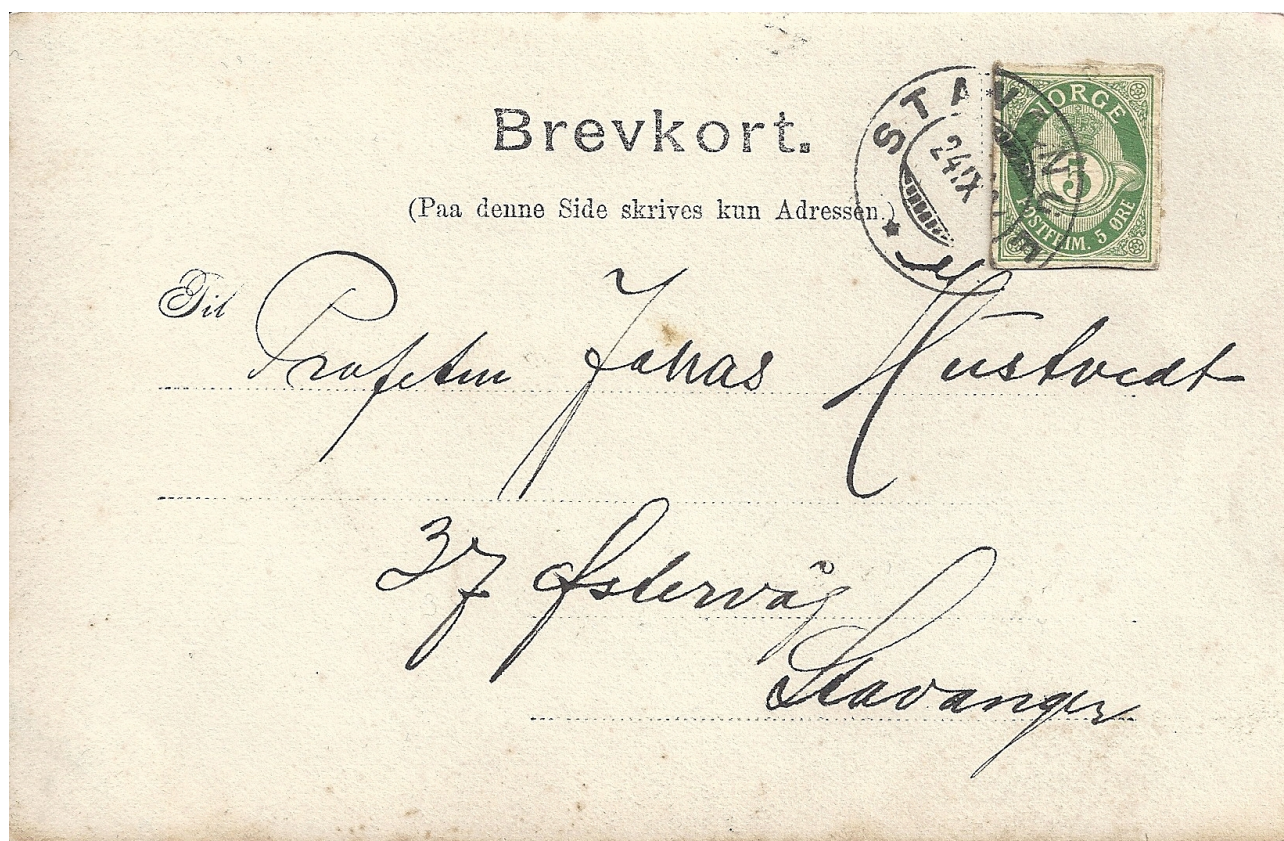 Brevkort.
(Paa denne Side skrives kun Adressen.)
STAVAN
24 IX
NORGE
5
POSTFRIM. 5 ØRE
Til Profeten Jonas Hustvedt
37 Østervåg
Stavanger